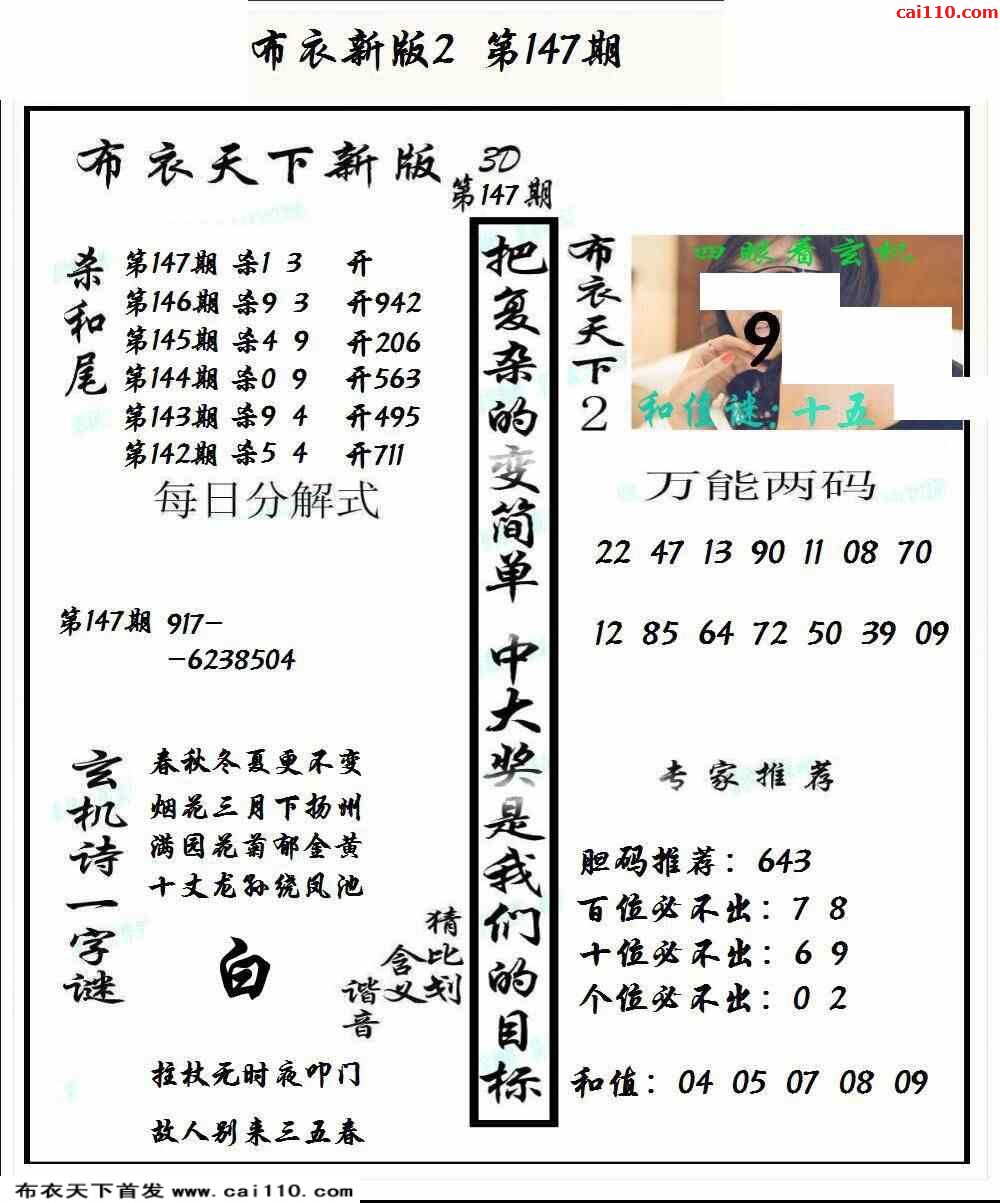 cai110.com
布衣新版2 第147期
布衣天下新版
3D
第147期
杀和尾
第147期 杀1 3 开
第146期 杀9 3 开942
第145期 杀4 9 开206
第144期 杀0 9 开563
第143期 杀9 4 开495
第142期 杀5 4 开711
每日分解式
第147期 917-
-6238504
玄机诗一字谜
春秋冬夏更不变
烟花三月下扬州
满园花菊郁金黄
十丈龙孙绕凤池
白
猜比划
含义
谐音
拄杖无时夜叩门
故人别来三五春
把复杂的变简单 中大奖是我们的目标
布衣天下2
四眼看玄机
9
和值谜:十五
万能两码
22 47 13 90 11 08 70
12 85 64 72 50 39 09
专家推荐
胆码推荐:643
百位必不出:7 8
十位必不出:6 9
个位必不出:0 2
和值:04 05 07 08 09
布衣天下首发 www.cai110.com